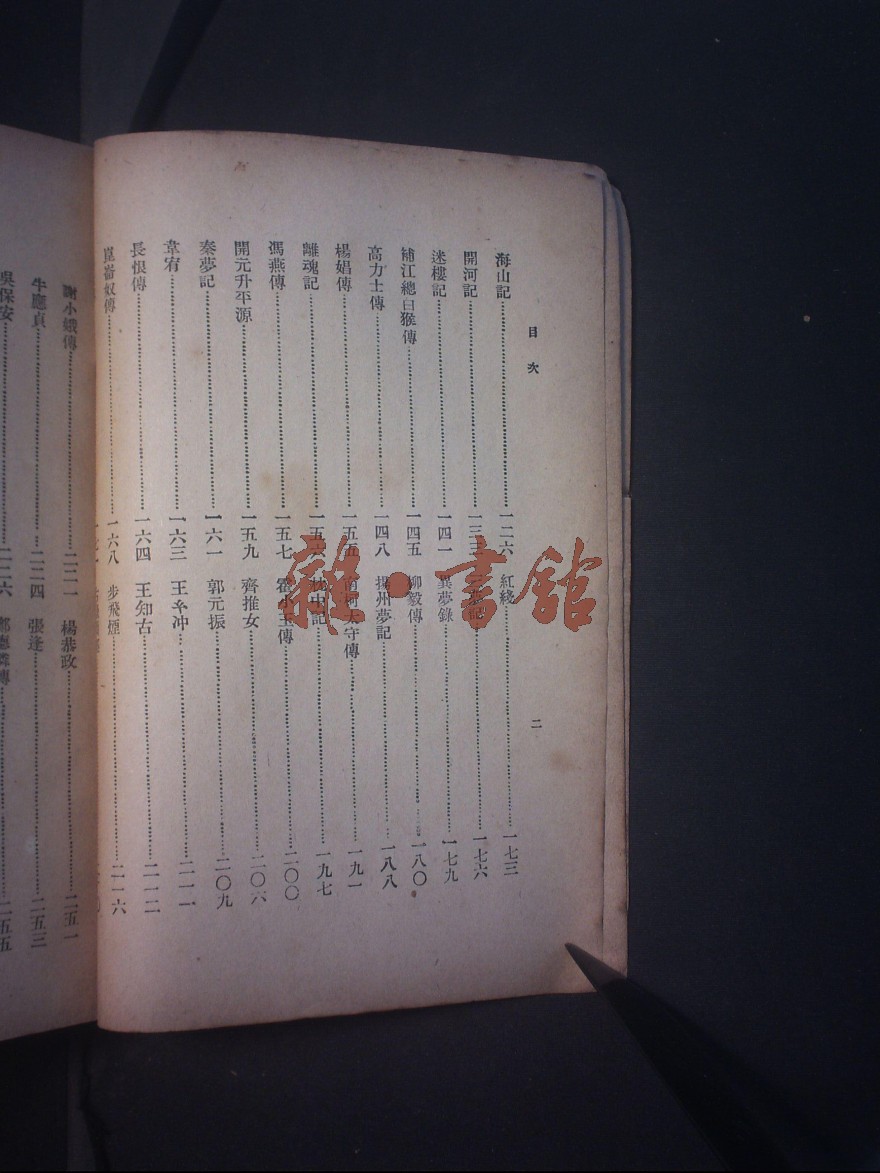 目次
二
海山記 一二六
開河記 一三三
迷樓記 一四一
補江總白猴傳 一四五
高力士傳 一四八
楊娼傳 一五五
離魂記 一五六
馮燕傳 一五七
開元升平源 一五九
秦夢記 一六一
韋宥 一六三
長恨傳 一六四
崑崙奴傳 一六八
紅綫 一七三
夢記 一七六
異夢錄 一七九
柳毅傳 一八〇
揚州夢記 一八八
南柯太守傳 一九一
枕中記 一九七
霍小玉傳 二〇〇
齊推女 二〇六
郭元振 二〇九
王冲 二一一
王知古 二一二
步飛煙 二一六
謝小娥傳 二二一
牛應貞 二二四
吳保安 二二六
楊恭政 二五一
張逢 二五三
二五五
雜·書舘